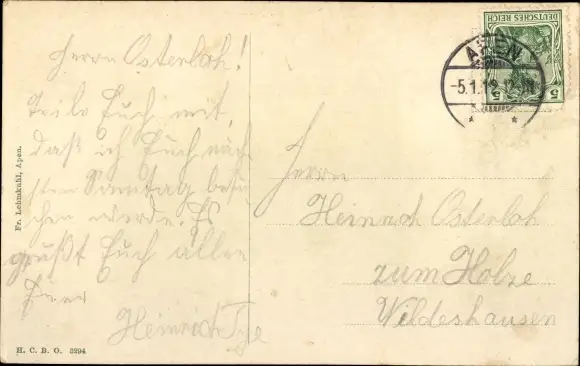 Herrn Osterloh!
Teile Euch mit,
daß ich Euch näch
sten Sonntag besu
chen werde. Es
grüßt Euch alle
Euer
Heinrich
Fr. Lehmkuhl, Apen.
H. C. B. O. 3294
DEUTSCHES REICH
5 5
APEN
-5.1.12.
Herrn
Heinrich Osterloh
zum Holze
Wildeshausen